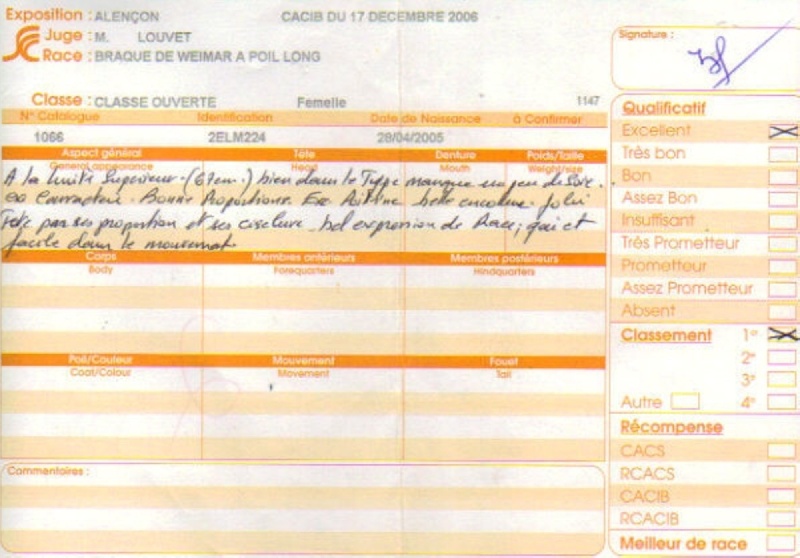 Exposition : ALENÇON CACIB DU 17 DECEMBRE 2006
Juge : M. LOUVET
Race : BRAQUE DE WEIMAR A POIL LONG
Signature :
Classe : CLASSE OUVERTE Femelle 1147
N° Catalogue Identification Date de Naissance à Confirmer
1066 2ELM224 28/04/2005
Aspect général Tête Denture Poids/Taille
General appearance Head Mouth Weight/size
A la limite Superieur - (67cm.) bien dans le Type manque un peu de
ex Caractère. Bonne Proportions. Exc Poitrine belle encolure. Jolie
Tete par ses proportion et ses ciselure, bel expression de Race; gai et
facile dans le mouvement
Corps Membres antérieurs Membres postérieurs
Body Forequarters Hindquarters
Poil/Couleur Mouvement Fouet
Coat/Colour Movement Tail
Commentaires :
Qualificatif
Excellent
Très bon
Bon
Assez Bon
Insuffisant
Très Prometteur
Prometteur
Assez Prometteur
Absent
Classement 1er
2e
3e
Autre 4e
Récompense
CACS
RCACS
CACIB
RCACIB
Meilleur de race